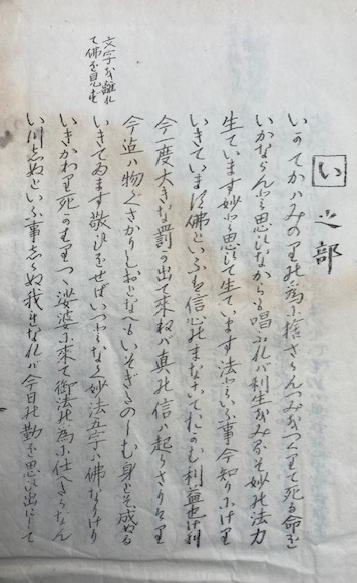 い之部
いかてかハみのり乃為に捨さらんつみをつくりて死る命を
いかならんと思ひながらも唱ふれバ利生をみるそ妙の法力
生ています妙と思ひて生ています法といふ事今知りにけり
いきています佛といふを信心のまなこてれのむ利益也
今一度大きな罸の出て来ねバ真の信ハ起らさりけり
今迄ハ物くさかりしおこなへもいそぎたのしむ身とそ成ぬる
いきてゐます敬ひをせばいつとなく妙法五字ハ佛なりけり
いきかわり死かわりつゝ娑婆に来て御法の為に仕へさらなん
い川志ぬといふ事しらぬ我身なれバ今日の勤を思ひ出にして
文字を離れ
て佛を見す